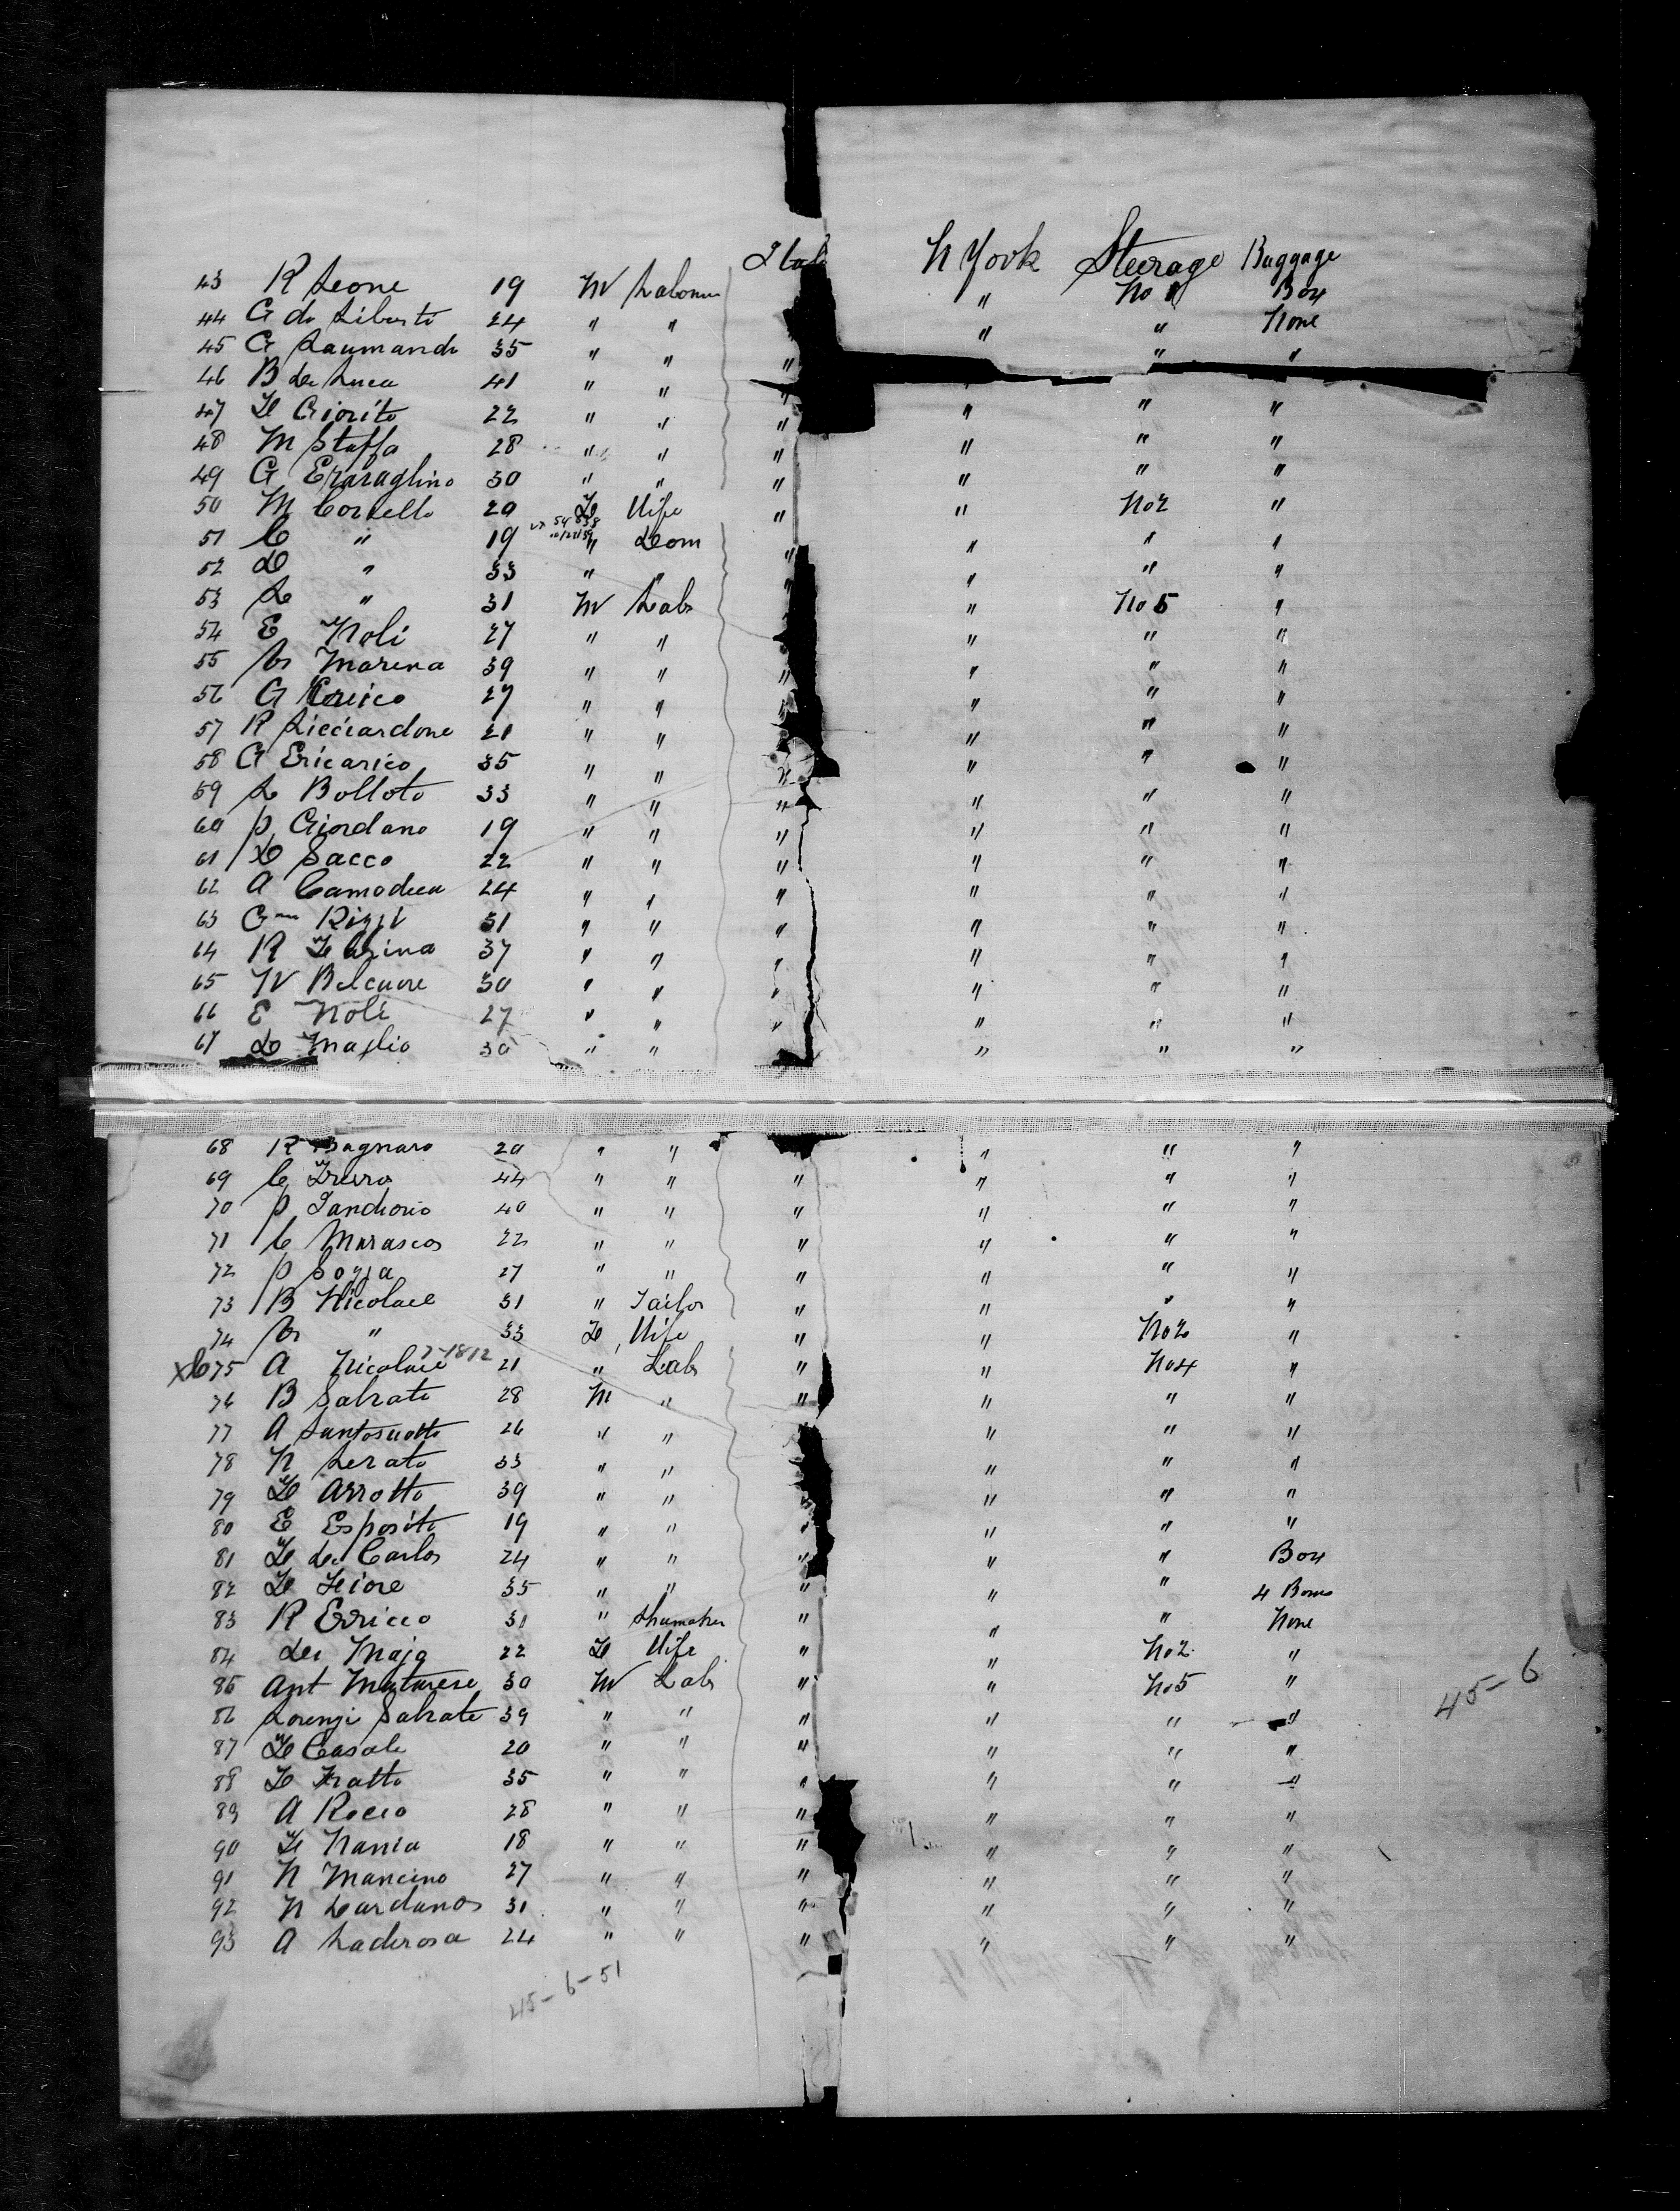 Ital N York Steerage Baggage
43 R Leone 19 M Labourer " No 1 Box
44 G de Liberto 24 " " " " None
45 G Laumandi 35 " " " " "
46 B de Luca 41 " " "
47 F Giorito 22 " " " " " "
48 M Staffa 28 " " " " " "
49 G 30 " " " " " "
50 M Cortello 20 F Wife " " No 2 "
51 C " 19 " Dom " " " "
52 D " 33 " " " " " "
53 L " 31 M Lab " No 5 "
54 E Noli 27 " " " " "
55 V Marena 39 " " " " " "
56 G Errico 27 " " " " " "
57 R Licciardone 21 " " " " "
58 G Ericarico 35 " " " " " "
59 L Bolloto 33 " " " " " "
60 P Giordano 19 " " " " " "
61 D Sacco 22 " " " " " "
62 A Camodeca 24 " " " " " "
63 Gm Rizzi 51 " " " " " "
64 R F 37 " " " " " "
65 W Belcuore 30 " " " " " "
66 E Noli 27 " " " " " "
67 D Maglio 30 " " " " "
68 R Bagnaro 20 " " " " "
69 C 44 " " " " " "
70 P 40 " " " " " "
71 C Marasco 22 " " " " " "
72 P Sozza 27 " " " " " "
73 B Nicolace 31 " Tailor " " " "
74 V " 33 F Wife " " No 2 "
75 A Nicolace 21 " Lab " " No 4 "
76 B Salrato 28 M " " " " "
77 A Santosuotto 26 " " " " "
78 N Lerato 33 " " " " "
79 F Arrotto 39 " " " " "
80 E Esposito 19 " " " " " "
81 F de Carlo 24 " " " " " Box
82 F Fiore 35 " " " " " 4 Boxes
83 R Errico 31 " Shumaker " " " None
84 de Maja 22 F Wife " " No 2 "
85 Ant Matarese 30 M Lab " " No 5 "
45-6
86 Lorenzi Salrato 39 " " " " " "
87 F Casale 20 " " " " " "
88 F Fratto 35 " " " " " "
89 A Rocco 28 " " " " " "
90 F Nania 18 " " " " " "
91 N Mancino 27 " " " " " "
92 N Cardano 31 " " " " " "
93 A Laderosa 24 " " " " " "
45-6-51